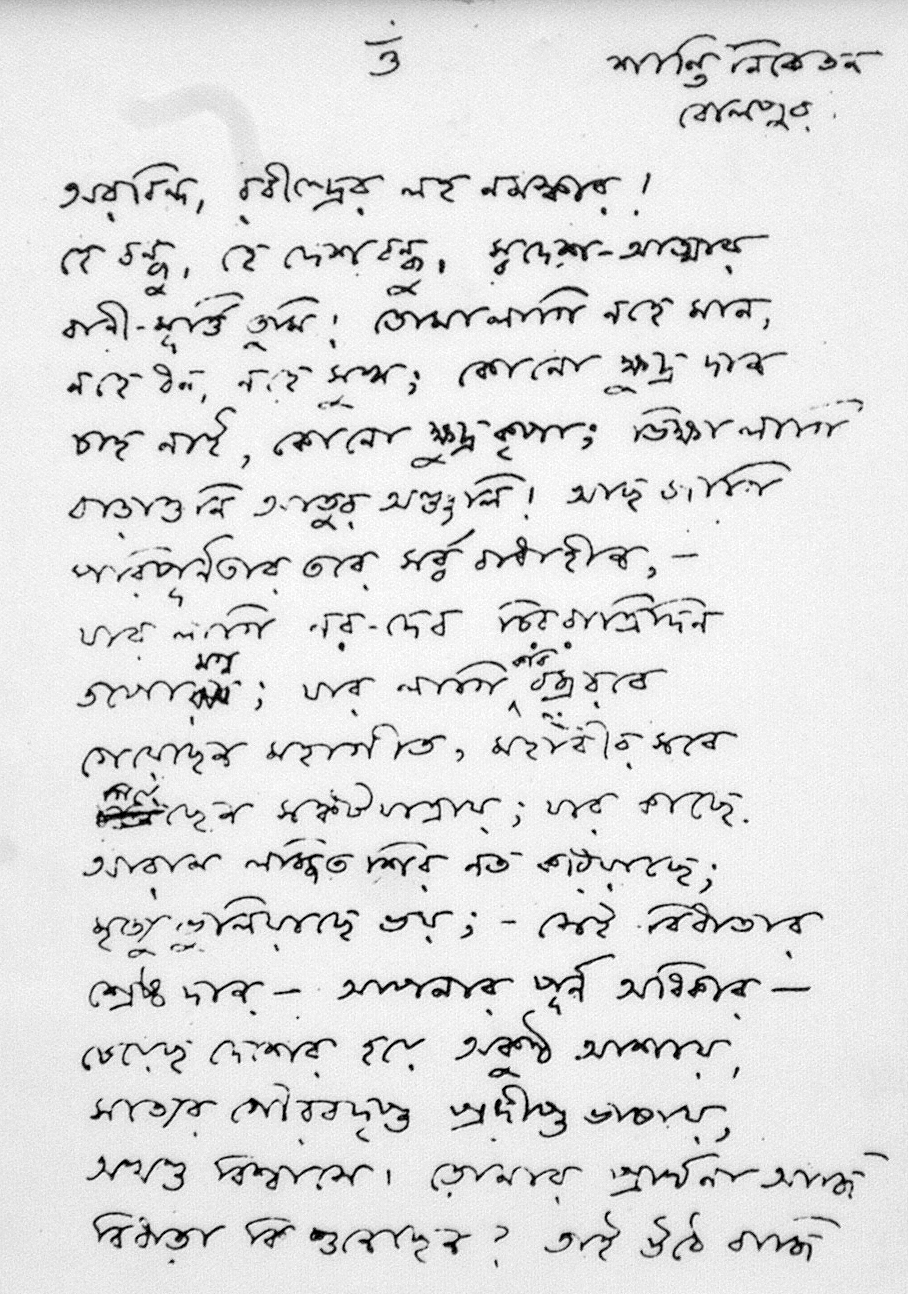 ওঁ
শান্তিনিকেতন
বোলপুর
অরবিন্দ, রবীন্দ্রের লহ নমস্কার!
হে বন্ধু, হে দেশবন্ধু, স্বদেশ-আত্মার
বাণী-মূর্ত্তি তুমি! তোমা লাগি নহে মান,
নহে ধন, নহে সুখ; কোনো ক্ষুদ্র দান
চাহ নাই, কোনো ক্ষুদ্র কৃপা; ভিক্ষা লাগি
বাড়াওনি আতুর অঞ্জলি! আছ জাগি
পরিপূর্ণতার তরে সর্ব্ববাধাহীন,—
যার লাগি নর-দেব চিররাত্রিদিন
তপোমগ্ন; যার লাগি কবি বজ্ররবে
গেয়েছেন মহাগীত, মহাবীর সবে
গিয়েছেন সঙ্কটযাত্রায়; যার কাছে
আরাম লজ্জিত শির নত করিয়াছে;
মৃত্যু ভুলিয়াছে ভয়;– সেই বিধাতার
শ্রেষ্ঠ দান – আপনার পূর্ণ অধিকার –
চেয়েছ দেশের হয়ে অকুণ্ঠ আশায়,
সত্যের গৌরবদৃপ্ত প্রদীপ্ত ভাষায়,
অখণ্ড বিশ্বাসে। তোমার প্রার্থনা আজি
বিধাতা কি শুনেছেন? তাই উঠে বাজি